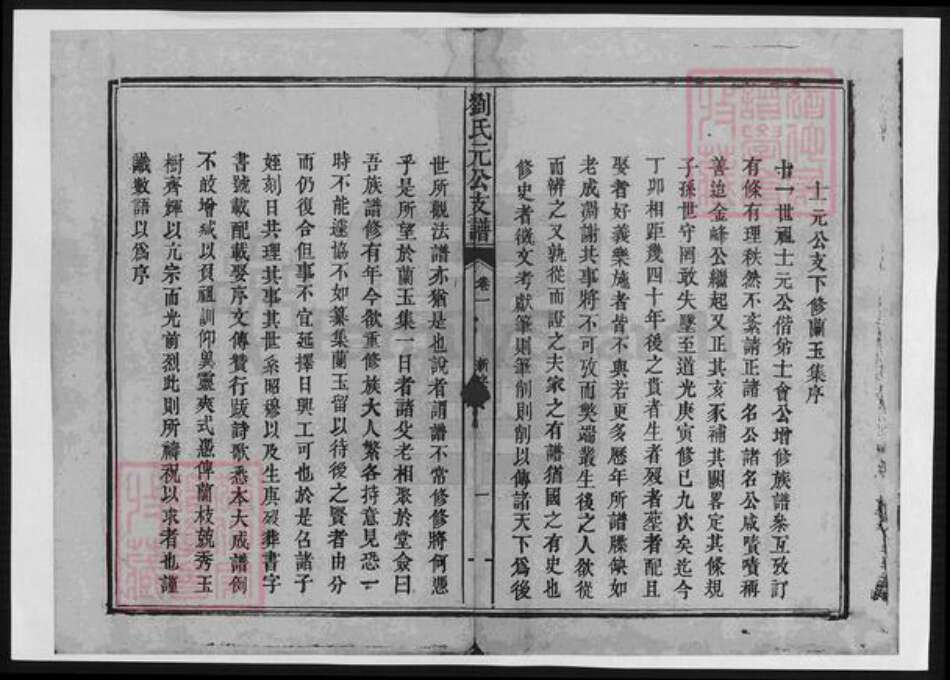 士元公支下修蘭玉集序
十一世祖士元公偕弟士會公增修族譜參互攷訂
有條有理秩然不紊請正諸名公諸名公咸嘖嘖稱
善迨金峰公繼起又正其亥豕補其闕畧定其條規
子孫世守罔敢失墜至道光庚寅修已九次矣迄今
丁卯相距幾四十年後之貴者生者歿者塟者配且
娶者好義樂施者皆不與若更多歷年所譜牒缺如
老成凋謝其事將不可攷而獘端叢生後之人欲從
而辨之又孰從而證之夫家之有譜猶國之有史也
修史者徵文考獻筆則筆削則削以傳諸天下為後
劉氏元公支譜
卷一
新序
一
世所觀法譜亦猶是也說者謂譜不常修修將何憑
乎是所望於蘭玉集一日者諸父老相聚於堂僉曰
吾族譜修有年今欲重修族大人繁各持意見恐一
時不能遽協不如纂集蘭玉留以待後之賢者由分
而仍復合但事不宜延擇日興工可也於是召諸子
姪刻日共理其事其世系昭穆以及生庚歿葬書字
書號載配載娶序文傳贊行跋詩歌悉本大成譜例
不敢增減以負祖訓仰異靈爽式憑俾蘭枝競秀玉
樹齊輝以亢宗而光前烈此則所禱祝以求者也謹
識數語以為序